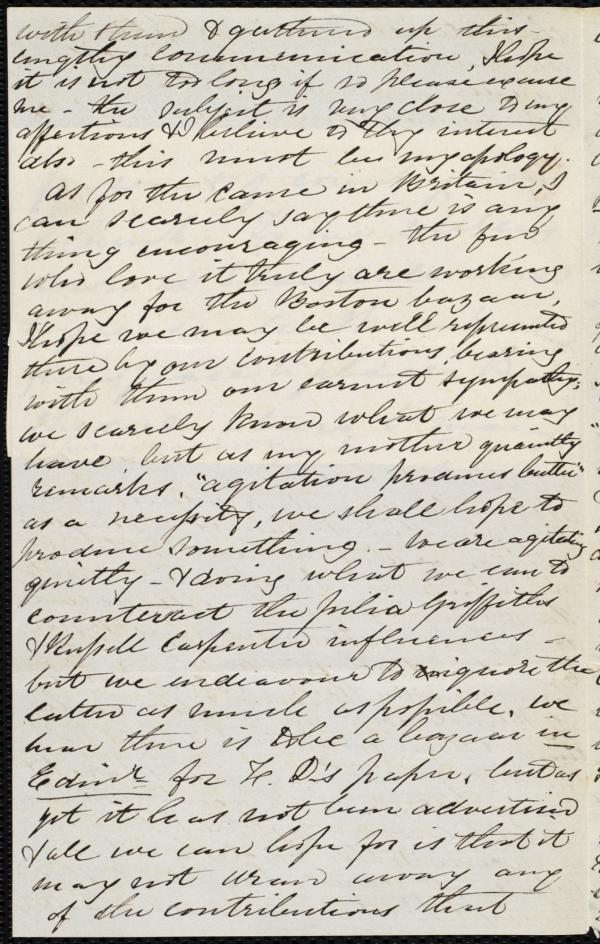 with them & gathered up this
lengthy communication, I hope
it is not too long if so please excuse
me - the subject is very close to my
affections & I believe to thy interest
also - this must be my apology.
As for the cause in Britain, I
can scarcely say there is any
thing encouraging - the few
who love it truly are working
away for the Boston bazaar,
I hope we may be well represented
there by our contributions, bearing
with them our earnest sympathy;
we scarcely know what we may
have but as my mother quaintly
remarks, "agitation produces butter"
as a necessity, we shall hope to
produce something. - We are agitating
quietly - & doing what we can to
counteract the Julia Griffiths
& Russell Carpenter influences -
but we endeavour to ignore the
latter as much as possible. we
hear there is to be a bazaar in
Edinr. for F. D's paper, but as
yet it has not been advertised
& all we can hope for is that it
may not draw away any
of the contributions that